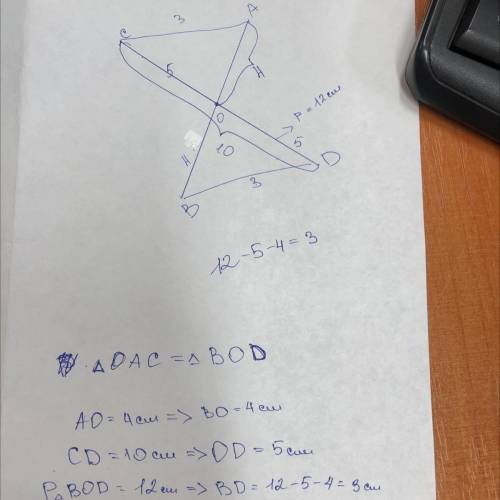 A
3
C
5
4
O
P = 12см
10
5
4
D
3
B
12-5-4=3
△OAC = △BOD
AO = 4см => BO = 4см
CD = 10см => OD = 5см
P△BOD = 12см => BD = 12-5-4 = 3см